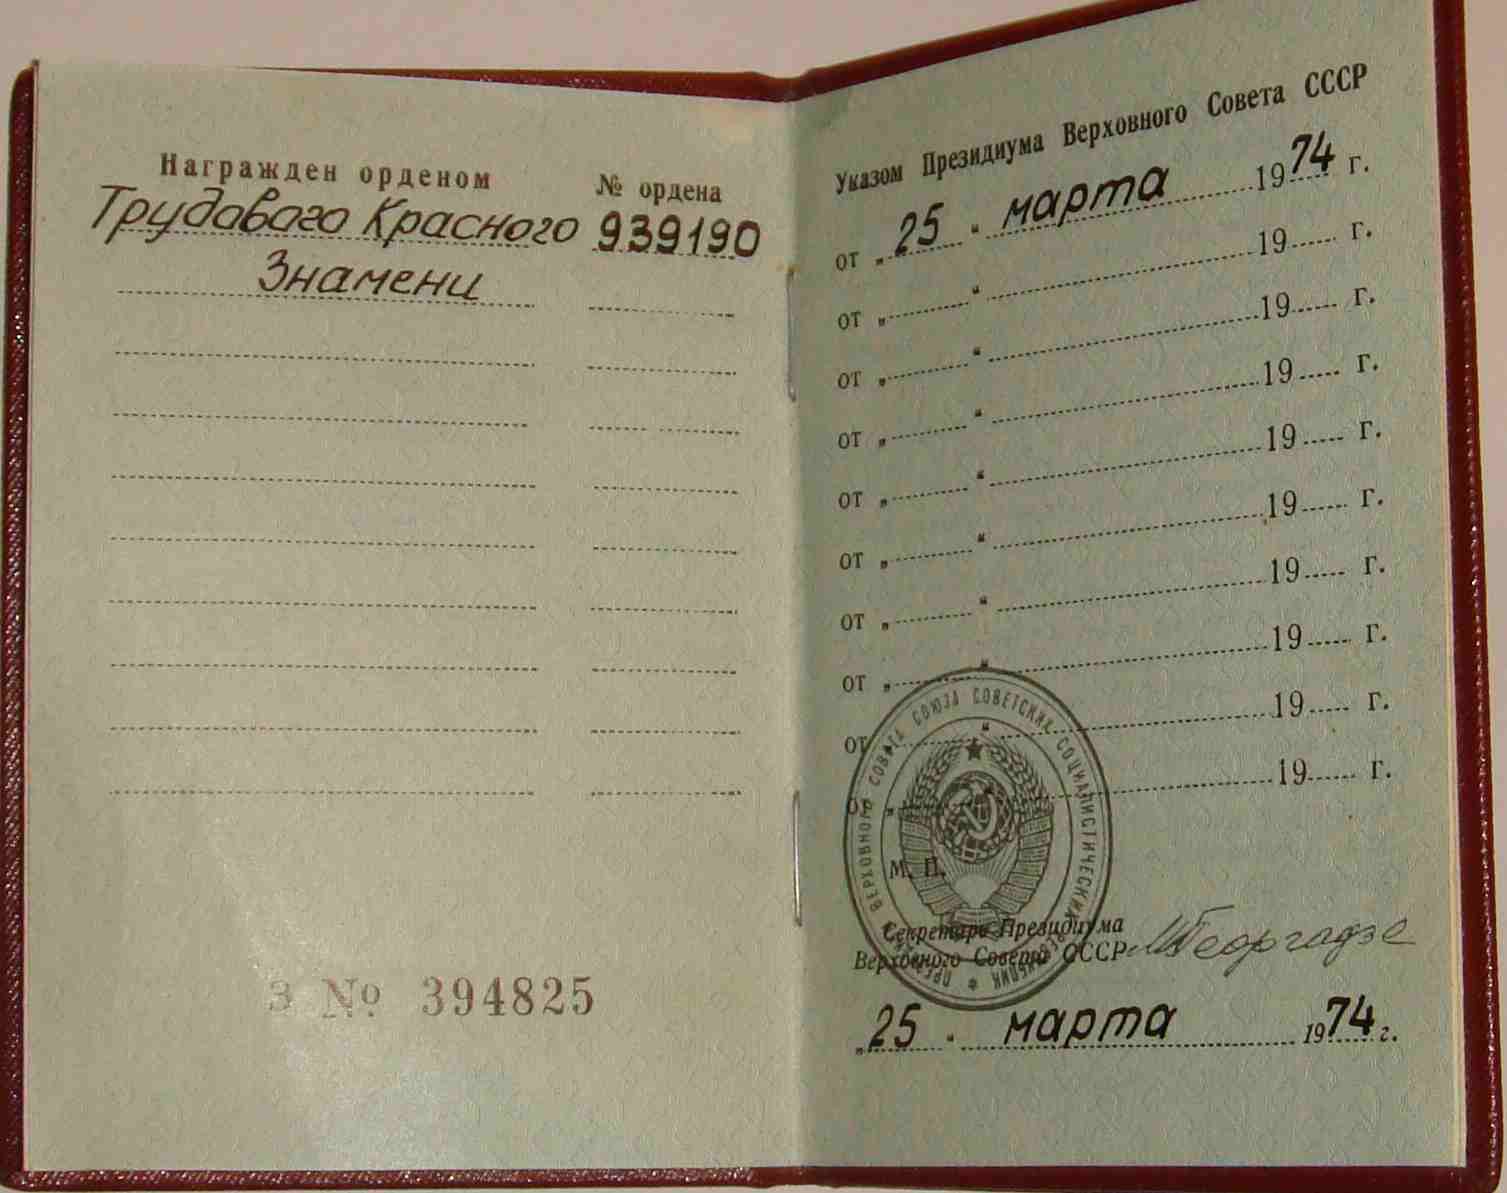 Награжден орденом № ордена
Трудового Красного 939190
Знамени
З № 394825
Указом Президиума Верховного Совета СССР
от „ 25 “ марта 1974 г.
от „ “ 19 г.
от „ “ 19 г.
от „ “ 19 г.
от „ “ 19 г.
от „ “ 19 г.
от „ “ 19 г.
от „ “ 19 г.
от „ “ 19 г.
от „ “ 19 г.
ПРЕЗИДИУМ ВЕРХОВНОГО СОВЕТА СОЮЗА СОВЕТСКИХ СОЦИАЛИСТИЧЕСКИХ РЕСПУБЛИК *
М. П.
Секретарь Президиума
Верховного Совета СССР МГеоргадзе
„ 25 “ марта 1974 г.